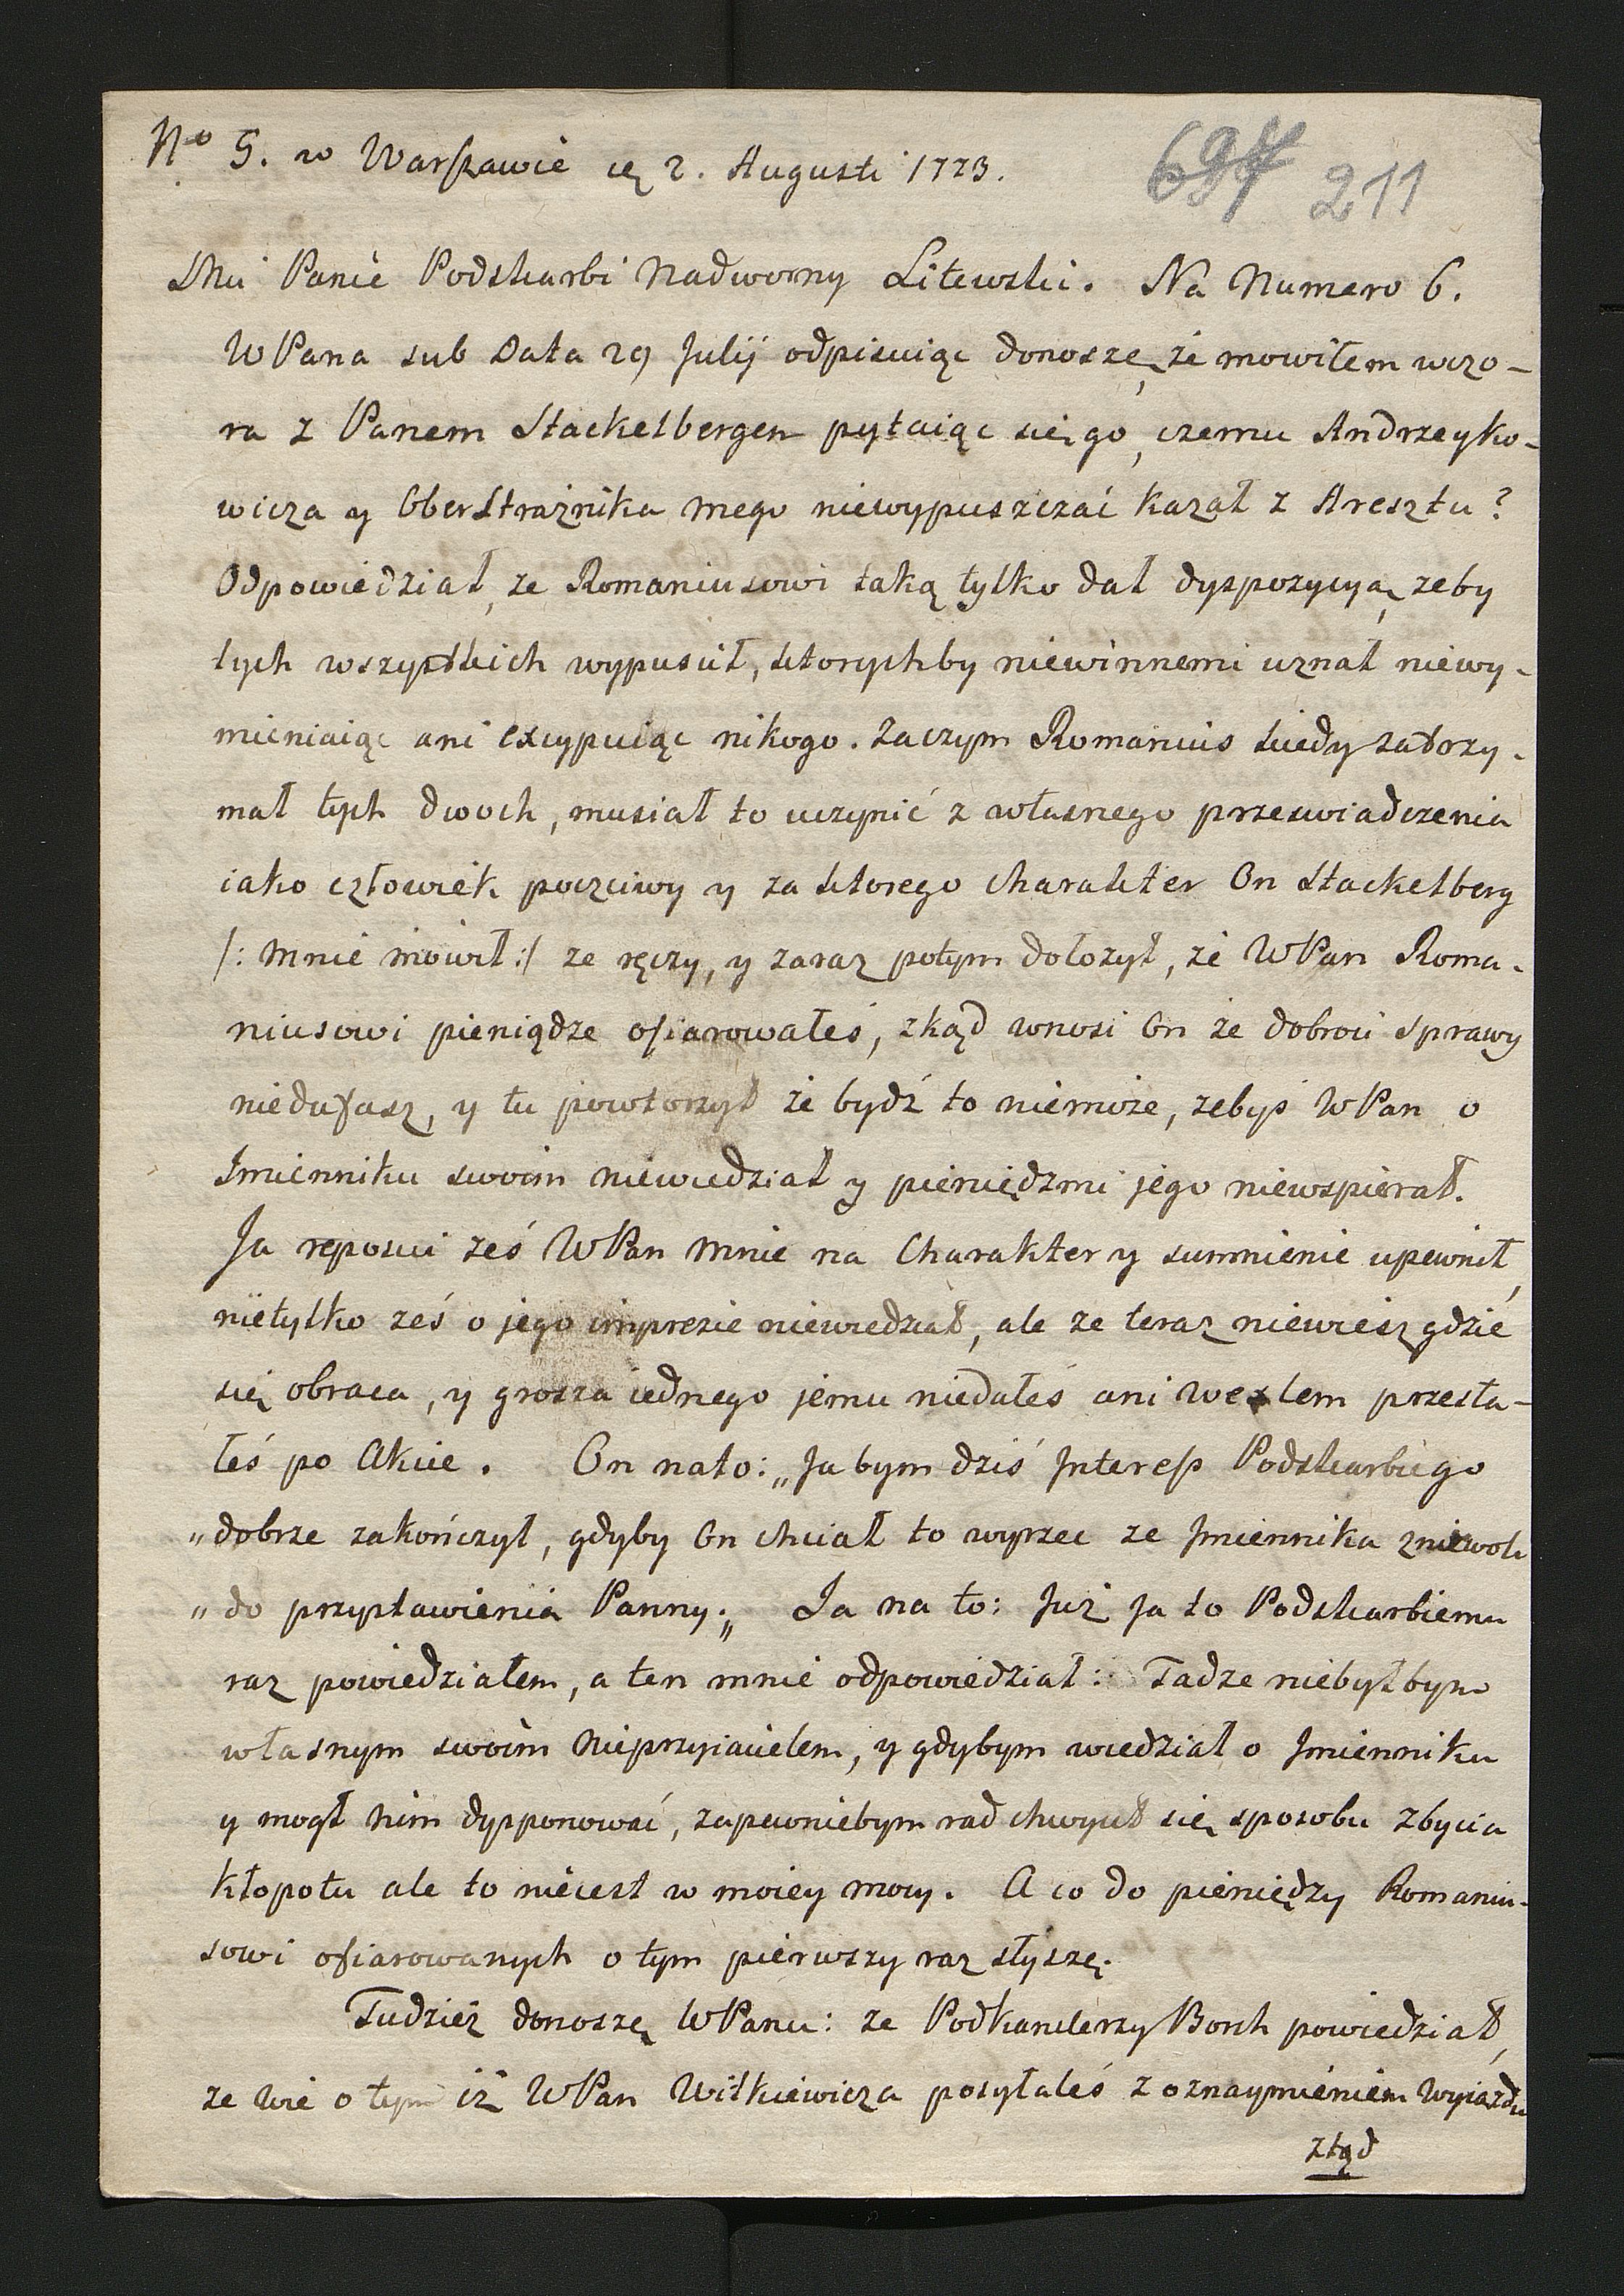 No 5. w Warszawie ię 2. Augusti 1773.
697 211
Mci Panie Podskarbi Nadworny Litewski. Na Numero 6.
WPana sub Data 29 Julij odpisuiąc donoszę, że mowiłem wczo-
ra z Panem Stackelbergem pytaiąc się go, czemu Andrzeyko-
wicza y OberStrażnika mego niewypuszczać kazał z Aresztu?
Odpowiedział, ze Romaniusowi taką tylko dał dyspozycyą, zeby
tych wszystkich wypuścił, ktorychby niewinnemi uznał niewy-
mieniaiąc ani excypuiąc nikogo. Zaczym Romanius kiedy zatrzy-
mał tych dwoch, musiał to uczynić z własnego przeswiadczenia
iako człowiek poczciwy y za ktorego charakter On Stackelberg
/: mnie mowił :/ ze ręczy, y zaraz potym dołozył, że WPan Roma-
niusowi pieniądze ofiarowałeś, zkąd wnosi On że dobroci sprawy
niedufasz, y tu powtorzył że bydź to niemoże, zebyś WPan o
Imienniku swoim niewiedział y pieniędzmi jego niewspierał.
Ja reposui żeś WPan mnie na Charakter y sumnienie upewnił,
nietylko żeś o jego imprezie niewiedział, ale ze teraz niewiesz gdzie
się obraca, y grosza iednego jemu niedałeś ani wexlem przesła-
łeś po Akcie. On nato: „Ja bym dziś Interess Podskarbiego
„dobrze zakończył, gdyby On chciał to wyrzec ze Imiennika zniewoli
„do przystawienia Panny.„ Ja na to: Już ja to Podskarbiemu
raz powiedziałem, a ten mnie odpowiedział: Tadze niebyłbym
własnym swoim nieprzyiacielem, y gdybym wiedział o Imienniku
y mogł nim dysponować, zapewniebym rad chwycił się sposobu zbycia
kłopotu ale to nieiest w moiey mocy. A co do pieniędzy Romaniu-
sowi ofiarowanych o tym pierwszy raz słyszę.
Tudzież donoszę WPanu: ze Podkanclerzy Borch powiedział,
ze wie o tym iż WPan Witkiewicza posyłałeś z oznaymieniem wyiazdu
ztąd